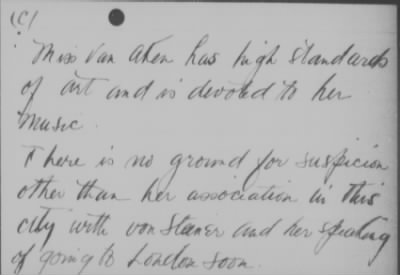 (C)
Miss Van Aken has high standards
of art and is devoted to her
music.
There is no ground for suspicion
other than her association in this
city with von Stauer and her speaking
of going to London soon.